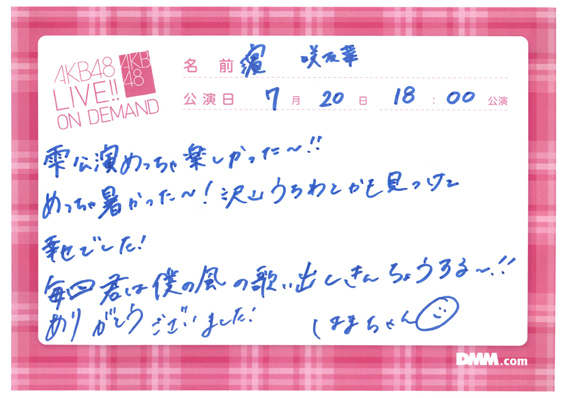 AKB48
LIVE!!
ON DEMAND
AKB
48
名前 濵 咲友菜
公演日 7月20日 18:00公演
雫公演めっちゃ楽しかった〜!!
めっちゃ暑かった〜!沢山うちわとかも見つけて
幸せでした!
毎回君は僕の風の歌い出しきんちょうする〜!!
ありがとうございました!
はまちゃん
DMM.com